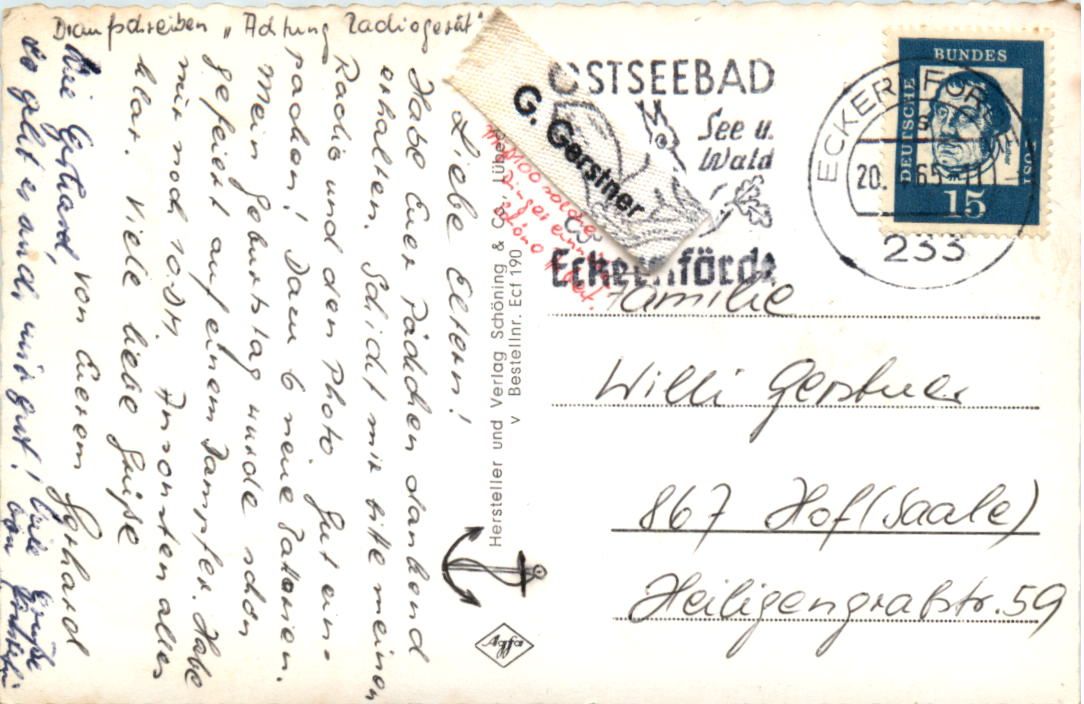 Draufschreiben "Achtung Radiogerät"
Liebe Eltern!
Habe Euer Päckchen dankend
erhalten. Schickt mir bitte meinen
Radio und den Photo. Gut ein-
packen! Dazu 6 neue Batterien.
Mein Geburtstag wurde schon
gefeiert auf einem Dampfer. Habe
mir noch
klar. Viele liebe Grüße
von Eurem Gerhard
Wie Gerhard,
so geht es auch mir gut! Viele Grüße
von
Hersteller und Verlag Schöning & Co Lübe
v Bestellnr. Ecf 190
Agfa
G. Gerstner
100 solche
Dinger
OSTSEEBAD
See u.
Wald
Eckernförde
ECKERNFÖR
20.
233
DEUTSCHE
BUNDES
15
Familie
Willi Gerstner
867 Hof (Saale)
Heiligengrabstr. 59